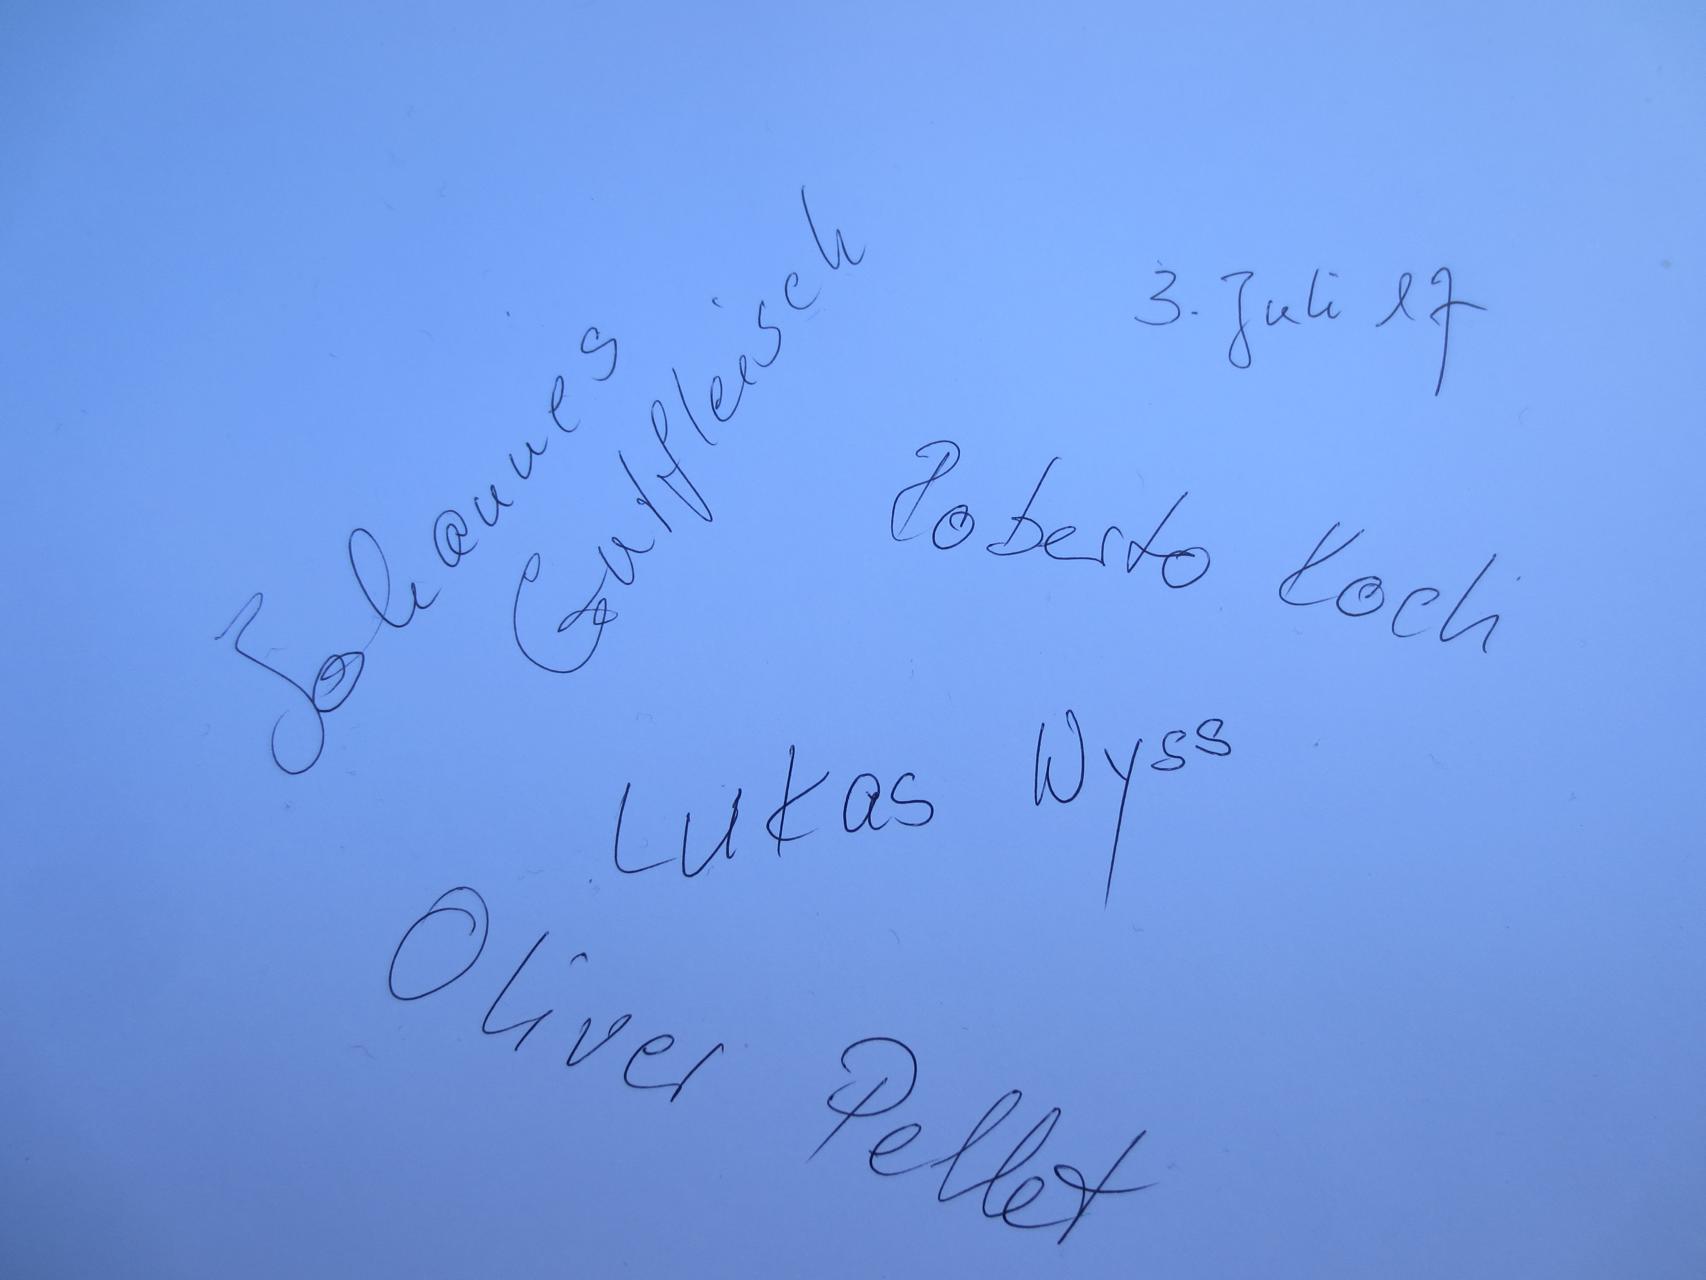 3. Juli 17
Johannes
Gutfleisch
Roberto Koch
Lukas Wyss
Oliver Pellet